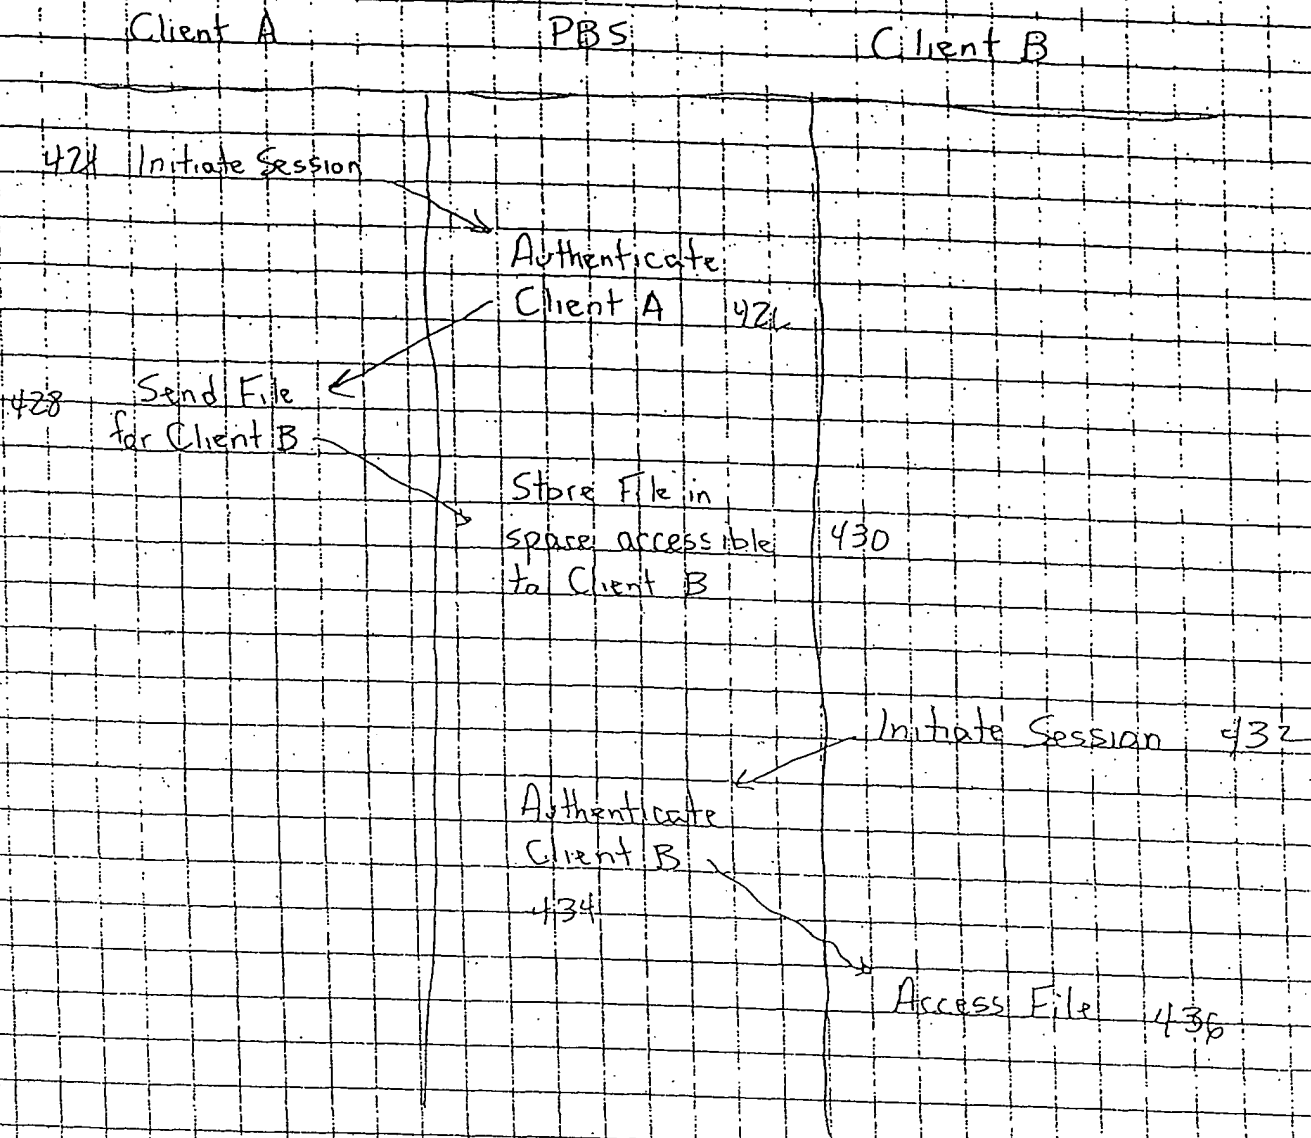 Client A PBS Client B
424 Initiate Session
Authenticate
Client A 426
428 Send File
for Client B
Store File in
space accessible 430
to Client B
Initiate Session 432
Authenticate
Client B
434
Access File 436